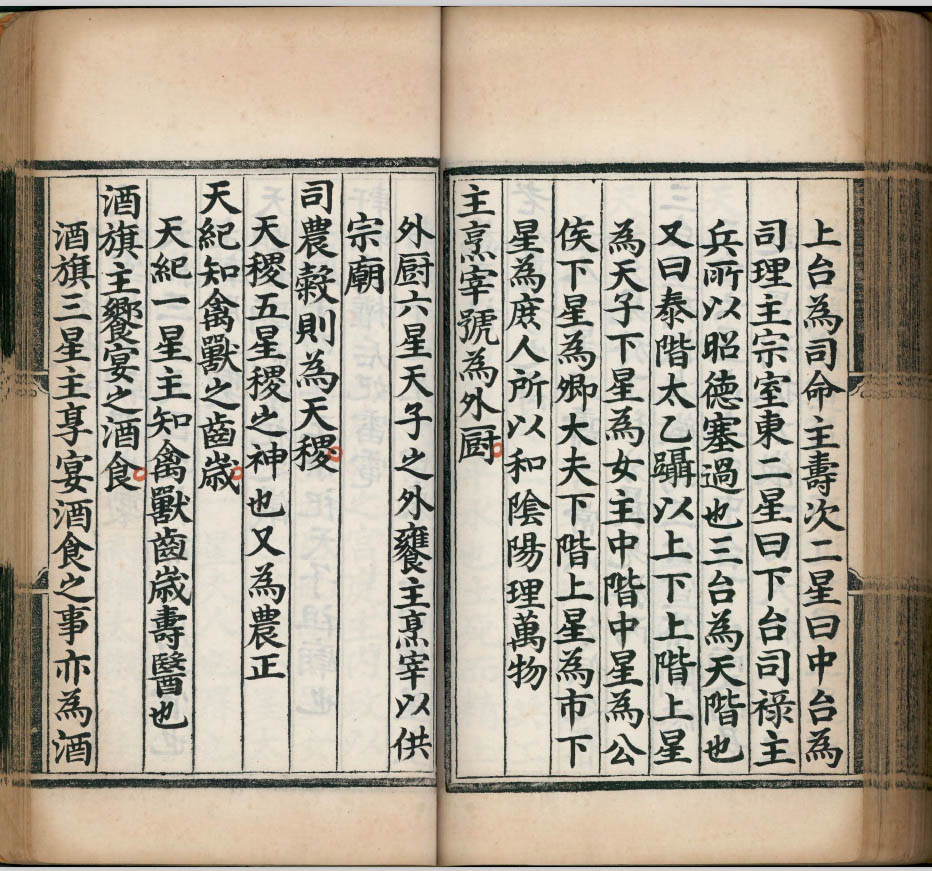 上台為司命主壽次二星曰中台為
司理主宗室東二星曰下台司祿主
兵所以昭德塞過也三台為天階也
又曰泰階太乙躡以上下上階上星
為天子下星為女主中階中星為公
矦下星為卿大夫下階上星為市下
星為庶人所以和陰陽理萬物
主烹宰號為外厨
外厨六星天子之外饔主烹宰以供
宗廟
司農穀則為天稷
天稷五星稷之神也又為農正
天紀知禽獸之齒歳
天紀一星主知禽獸齒歳壽毉也
酒旗主饗宴之酒食
酒旗三星主享宴酒食之事亦為酒